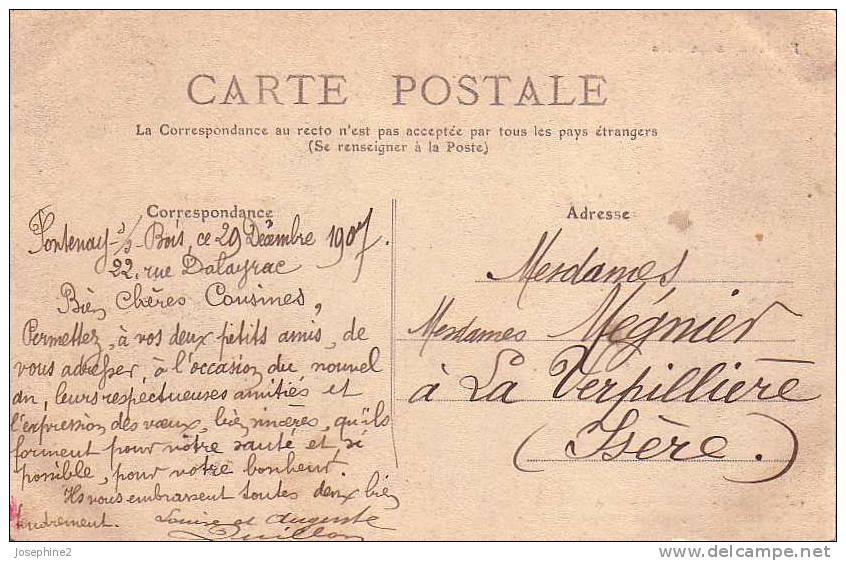 CARTE POSTALE
La Correspondance au recto n'est pas acceptée par tous les pays étrangers
(Se renseigner à la Poste)
Correspondance
Fontenay-s/s-Bois, ce 29 Décembre 1907.
22, rue Dalayrac
Bien Chères Cousines,
Permettez, à vos deux petits amis, de
vous adresser, à l'occasion du nouvel
an, leurs respectueuses amitiés et
l'expression des vœux, bien sincères, qu'ils
forment pour vôtre santé et, si
possible, pour vôtre bonheur.
Ils vous embrassent toutes deux bien
tendrement. Louise et Auguste
Adresse
Mesdames
Mesdames Mégnier
à La Verpillière
(Isère.)
Josephine2
www.delcampe.net